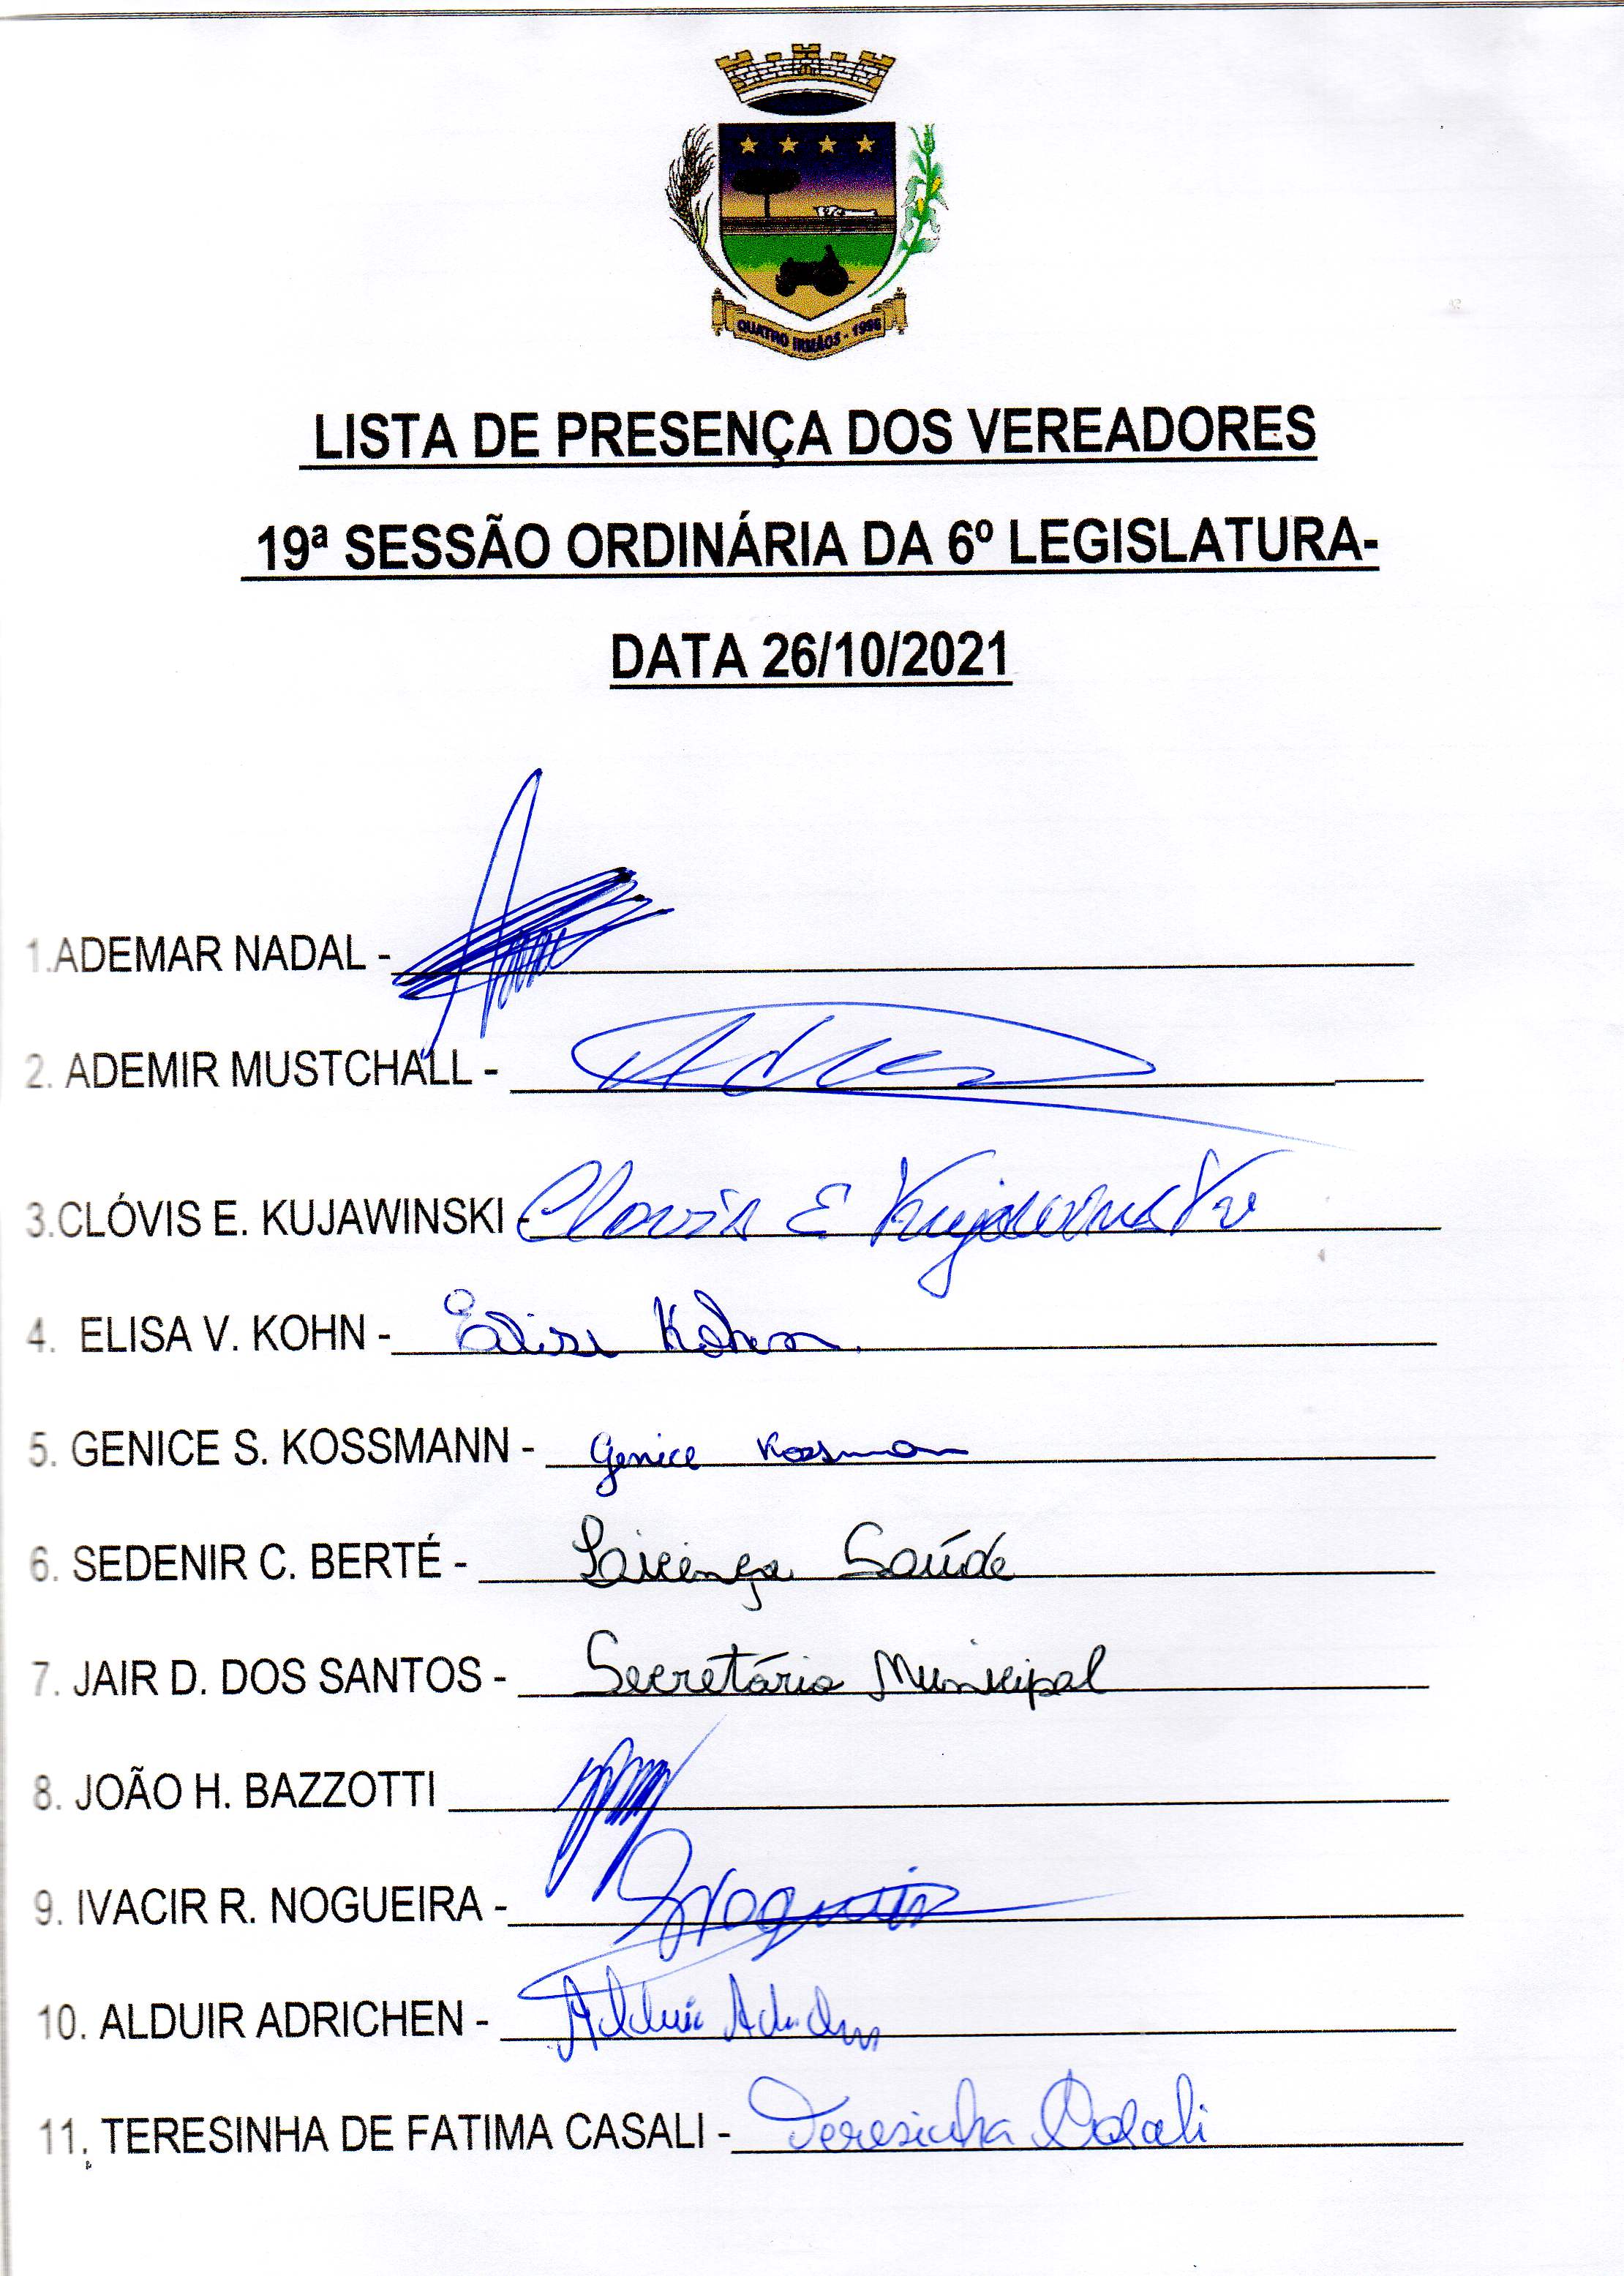 QUATRO IRMÃOS - 1996
LISTA DE PRESENÇA DOS VEREADORES
19ª SESSÃO ORDINÁRIA DA 6º LEGISLATURA-
DATA 26/10/2021
1.ADEMAR NADAL -
2. ADEMIR MUSTCHALL -
3.CLÓVIS E. KUJAWINSKI - Clovis E Kujawinski
4. ELISA V. KOHN - Elisa Kohn
5. GENICE S. KOSSMANN - Genice Kossman
6. SEDENIR C. BERTÉ - Licença Saúde
7. JAIR D. DOS SANTOS - Secretário Municipal
8. JOÃO H. BAZZOTTI
9. IVACIR R. NOGUEIRA -
10. ALDUIR ADRICHEN - Alduir
11. TERESINHA DE FATIMA CASALI - Teresinha Casali